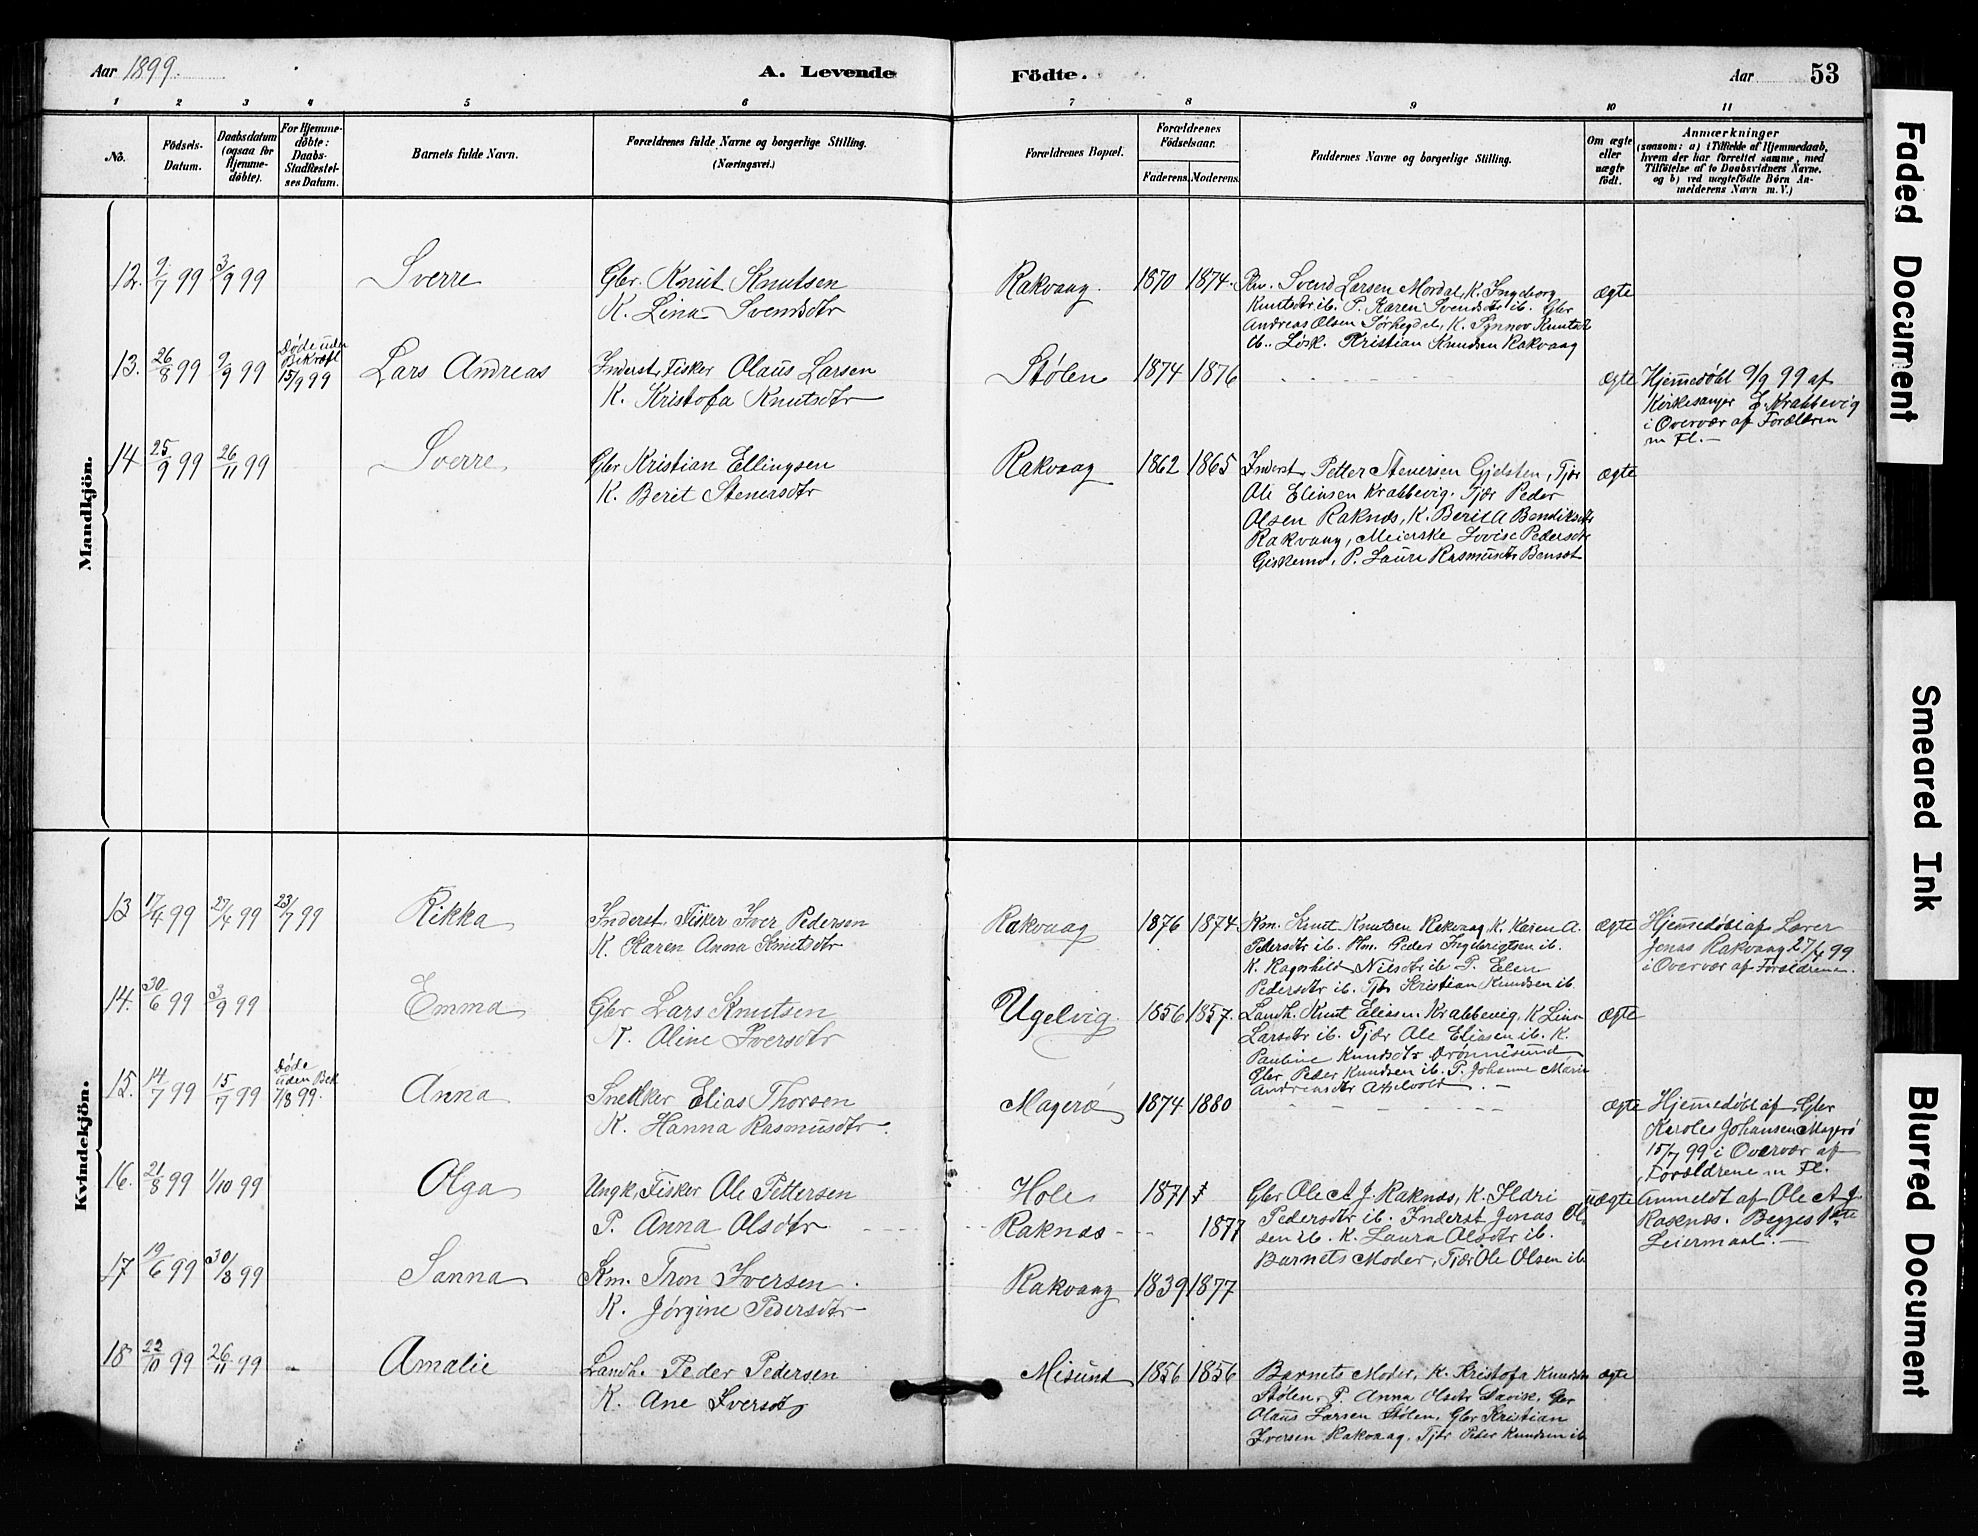 Aar 1899. A. Levende Födte. Aar 53
1 2 3 4 5 6 7 8 9 10 11
No.
Födsels-
Datum.
Daabsdatum
(ogsaa for
Hjemme-
döbte).
For Hjemme-
döbte:
Daabs-
Stadfæstel-
ses Datum.
Barnets fulde Navn.
Forældrenes fulde Navne og borgerlige Stilling.
(Næringsvei.)
Forældrenes Bopæl.
Forældrenes
Födselsaar.
Faderens. Moderens.
Faddernes Navne og borgerlige Stilling.
Om ægte
eller
uægte
födt.
Anmærkninger
(saasom: a) i Tilfælde af Hjemmedaab,
hvem der har forrettet samme, med
Tilföielse af to Daabsvidners Navne.
og b) ved uægtefödte Börn An-
melderens Navn m. V.)
Mandkjön.
12. 9/7 99 3/9 99 Sverre
Gbr. Knut Knutsen
K. Lina Svendsdtr
Rakvaag. 1870 1874.
Svend Larsen Mordal, K. Ingeborg
Knutsdtr ib. P. Karen Svendsdtr ib. Gbr
Andreas Olsen K. Synnøv Knutsdtr
ib. Kristian Knudsen Rakvaag
ægte
13. 26/8 99 9/9 99
Døde uden
Bekræft
15/9 99
Lars Andreas
Inderst, Fisker Olaus Larsen
K. Kristofa Knutsdtr
Stølen 1874 1876
ægte
Hjemmedøbt 9/9 99 af
Kirkesanger E. Krabbevig
i Overvær af Forældren
m Fl. -
14 25/9 99 26/11 99 Sverre
Gbr Kristian Ellingsen
K. Berit Stenersdtr
Rakvaag 1862 1865
Inderst Petter Stenersen Gjelsten, Tjr
Ole Eliasen Krabbevig. Tjr Peder
Olsen Raknæs, K. Berit A Bendiksdtr
Rakvaag, Meierske Lovise Pedersdtr
P. Laura Rasmusdtr
ægte
Kvindekjön.
13 17/4 99 27/4 99 23/7 99 Rikka
Inderst. Fisker Iver Pedersen
K. Karen Anna Knutsdtr
Rakvaag 1876 1874
Km. Knut Knutsen Rakvaag, K. Karen A.
Pedersdtr ib. Km. Peder Ingebrigtsen ib.
K. Ragnhild Nilsdtr ib. P. Elen
Pedersdtr ib. Tjr Kristian Knudsen ib
ægte
Hjemmedøbt af Lærer
Jonas Rakvaag 27/4 99
i Overvær af Forældrene.
14. 30/6 99 3/9 99 Emma
Gbr Lars Knutsen
K. Oline Iversdtr
Ugelvig 1856 1857.
Landh. Knut Eliasen Krabbevig, K Lina
Larsdtr ib. Tjr Ole Eliasen ib. K.
Pauline Knudsdtr Drønnesund
Gbr Peder Knudsen ib. P. Johanne Marie
Andreasdtr
ægte
15. 14/7 99 15/7 99
Døde
uden Bek
7/8 99.
Anna
Snekker Elias Thorsen
K. Hanna Rasmusdtr.
Magerø 1874 1880
ægte
Hjemmedøbt af Gbr
Karoles Johansen Magerø
15/7 99 i Overvær af
Forældrene m Fl.
16. 21/8 99 1/10 99 Olga
Ungk. Fisker Ole Pettersen
P. Anna Olsdtr
Hole 1871
Raknæs 1877
Gbr Ole A J. Raknæs, K. Ildri
Pedersdtr ib. Inderst Jonas Ol-
sen ib. K. Laura Olsdtr ib.
Barnets Moder, Tjr Ole Olsen ib
uægte
Anmeldt af Ole A J.
Raknæs. Begges 1ste
Leiermaal. -
17 19/6 99 30/8 99 Sanna
Km. Tron Iversen.
K. Jørgine Pedersdtr
Rakvaag 1839 1877
18 22/10 99 26/11 99 Amalie
Landh. Peder Pedersen
K. Ane Iversdtr
Misund 1856 1856
Barnets Moder, K. Kristofa Knudsdtr
Stølen, P. Anna Olsdtr Gbr
Olaus Larsen Stølen, Gbr Kristian
Iversen Rakvaag. Tjr Peder Knudsen ib
ægte
Faded Document
Smeared Ink
Blurred Document